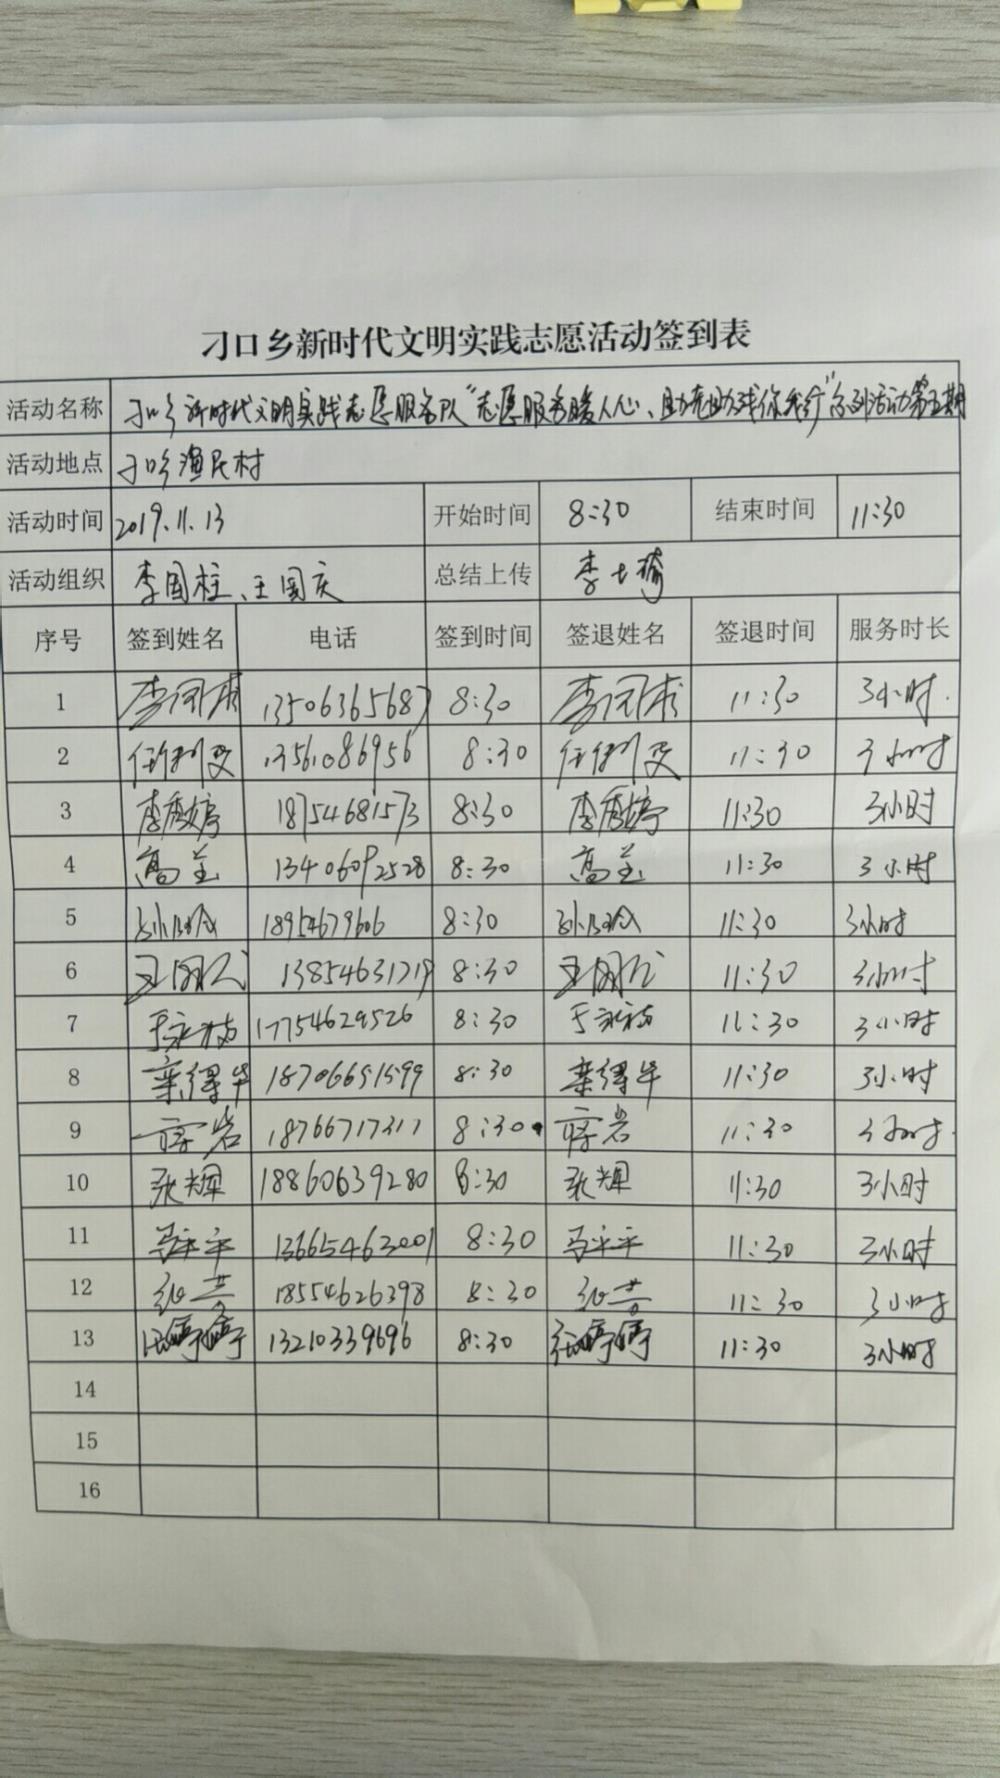 刁口乡新时代文明实践志愿活动签到表
活动名称 刁口乡新时代文明实践志愿服务队"志愿服务暖人心、助老助残你我行"系列活动第五期
活动地点 刁口乡渔民村
活动时间 2019.11.13 开始时间 8:30 结束时间 11:30
活动组织 李国柱、王国庆 总结上传 李
序号 签到姓名 电话 签到时间 签退姓名 签退时间 服务时长
1 李 13506365687 8:30 李 11:30 3小时
2 任 13561086956 8:30 任 11:30 3小时
3 李秀婷 18754681573 8:30 李秀婷 11:30 3小时
4 高 13406092528 8:30 高 11:30 3小时
5 18954679606 8:30 11:30 3小时
6 王 13854631719 8:30 王 11:30 3小时
7 于永 17754629526 8:30 于永 11:30 3小时
8 栾得华 18706651599 8:30 栾得华 11:30 3小时
9 岩 18766717317 8:30 岩 11:30 3小时
10 张辉 18860639280 8:30 张辉 11:30 3小时
11 马平平 13665463001 8:30 马平平 11:30 3小时
12 张 18554626398 8:30 张 11:30 3小时
13 张婷婷 13210339696 8:30 张婷婷 11:30 3小时
14
15
16